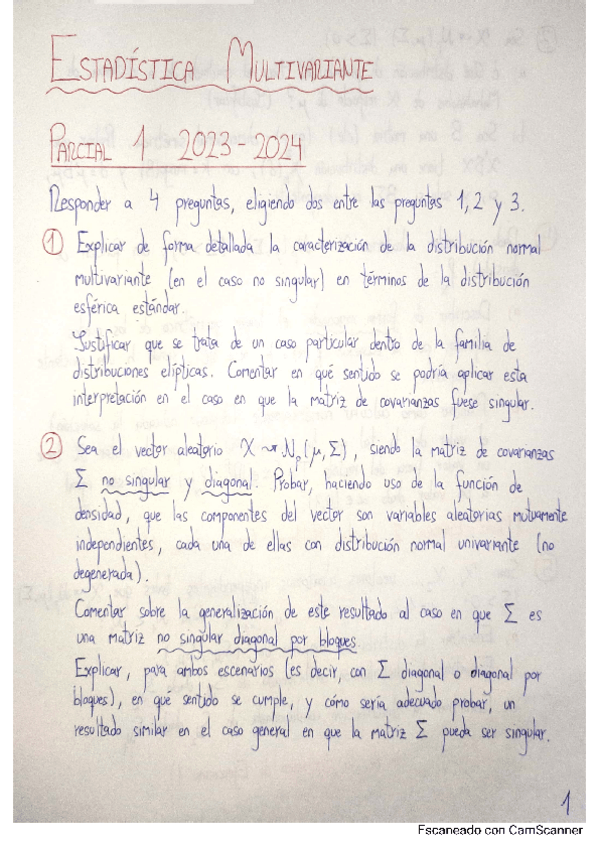 ESTADÍSTICA MULTIVARIANTE
PARCIAL 1 2023-2024
Responder a 4 preguntas, eligiendo dos entre las preguntas 1, 2 y 3.
1 Explicar de forma detallada la caracterización de la distribución normal
multivariante (en el caso no singular) en términos de la distribución
esférica estándar.
Justificar que se trata de un caso particular dentro de la familia de
distribuciones elípticas. Comentar en qué sentido se podría aplicar esta
interpretación en el caso en que la matriz de covarianzas fuese singular.
2 Sea el vector aleatorio X ⇝ Np(μ, Σ), siendo la matriz de covarianzas
Σ no singular y diagonal. Probar, haciendo uso de la función de
densidad, que las componentes del vector son variables aleatorias mutuamente
independientes, cada una de ellas con distribución normal univariante (no
degenerada).
Comentar sobre la generalización de este resultado al caso en que Σ es
una matriz no singular diagonal por bloques
Explicar, para ambos escenarios (es decir, con Σ diagonal o diagonal por
bloques), en qué sentido se cumple, y cómo sería adecuado probar, un
resultado similar en el caso general en que la matriz Σ pueda ser singular.
1
Escaneado con CamScanner